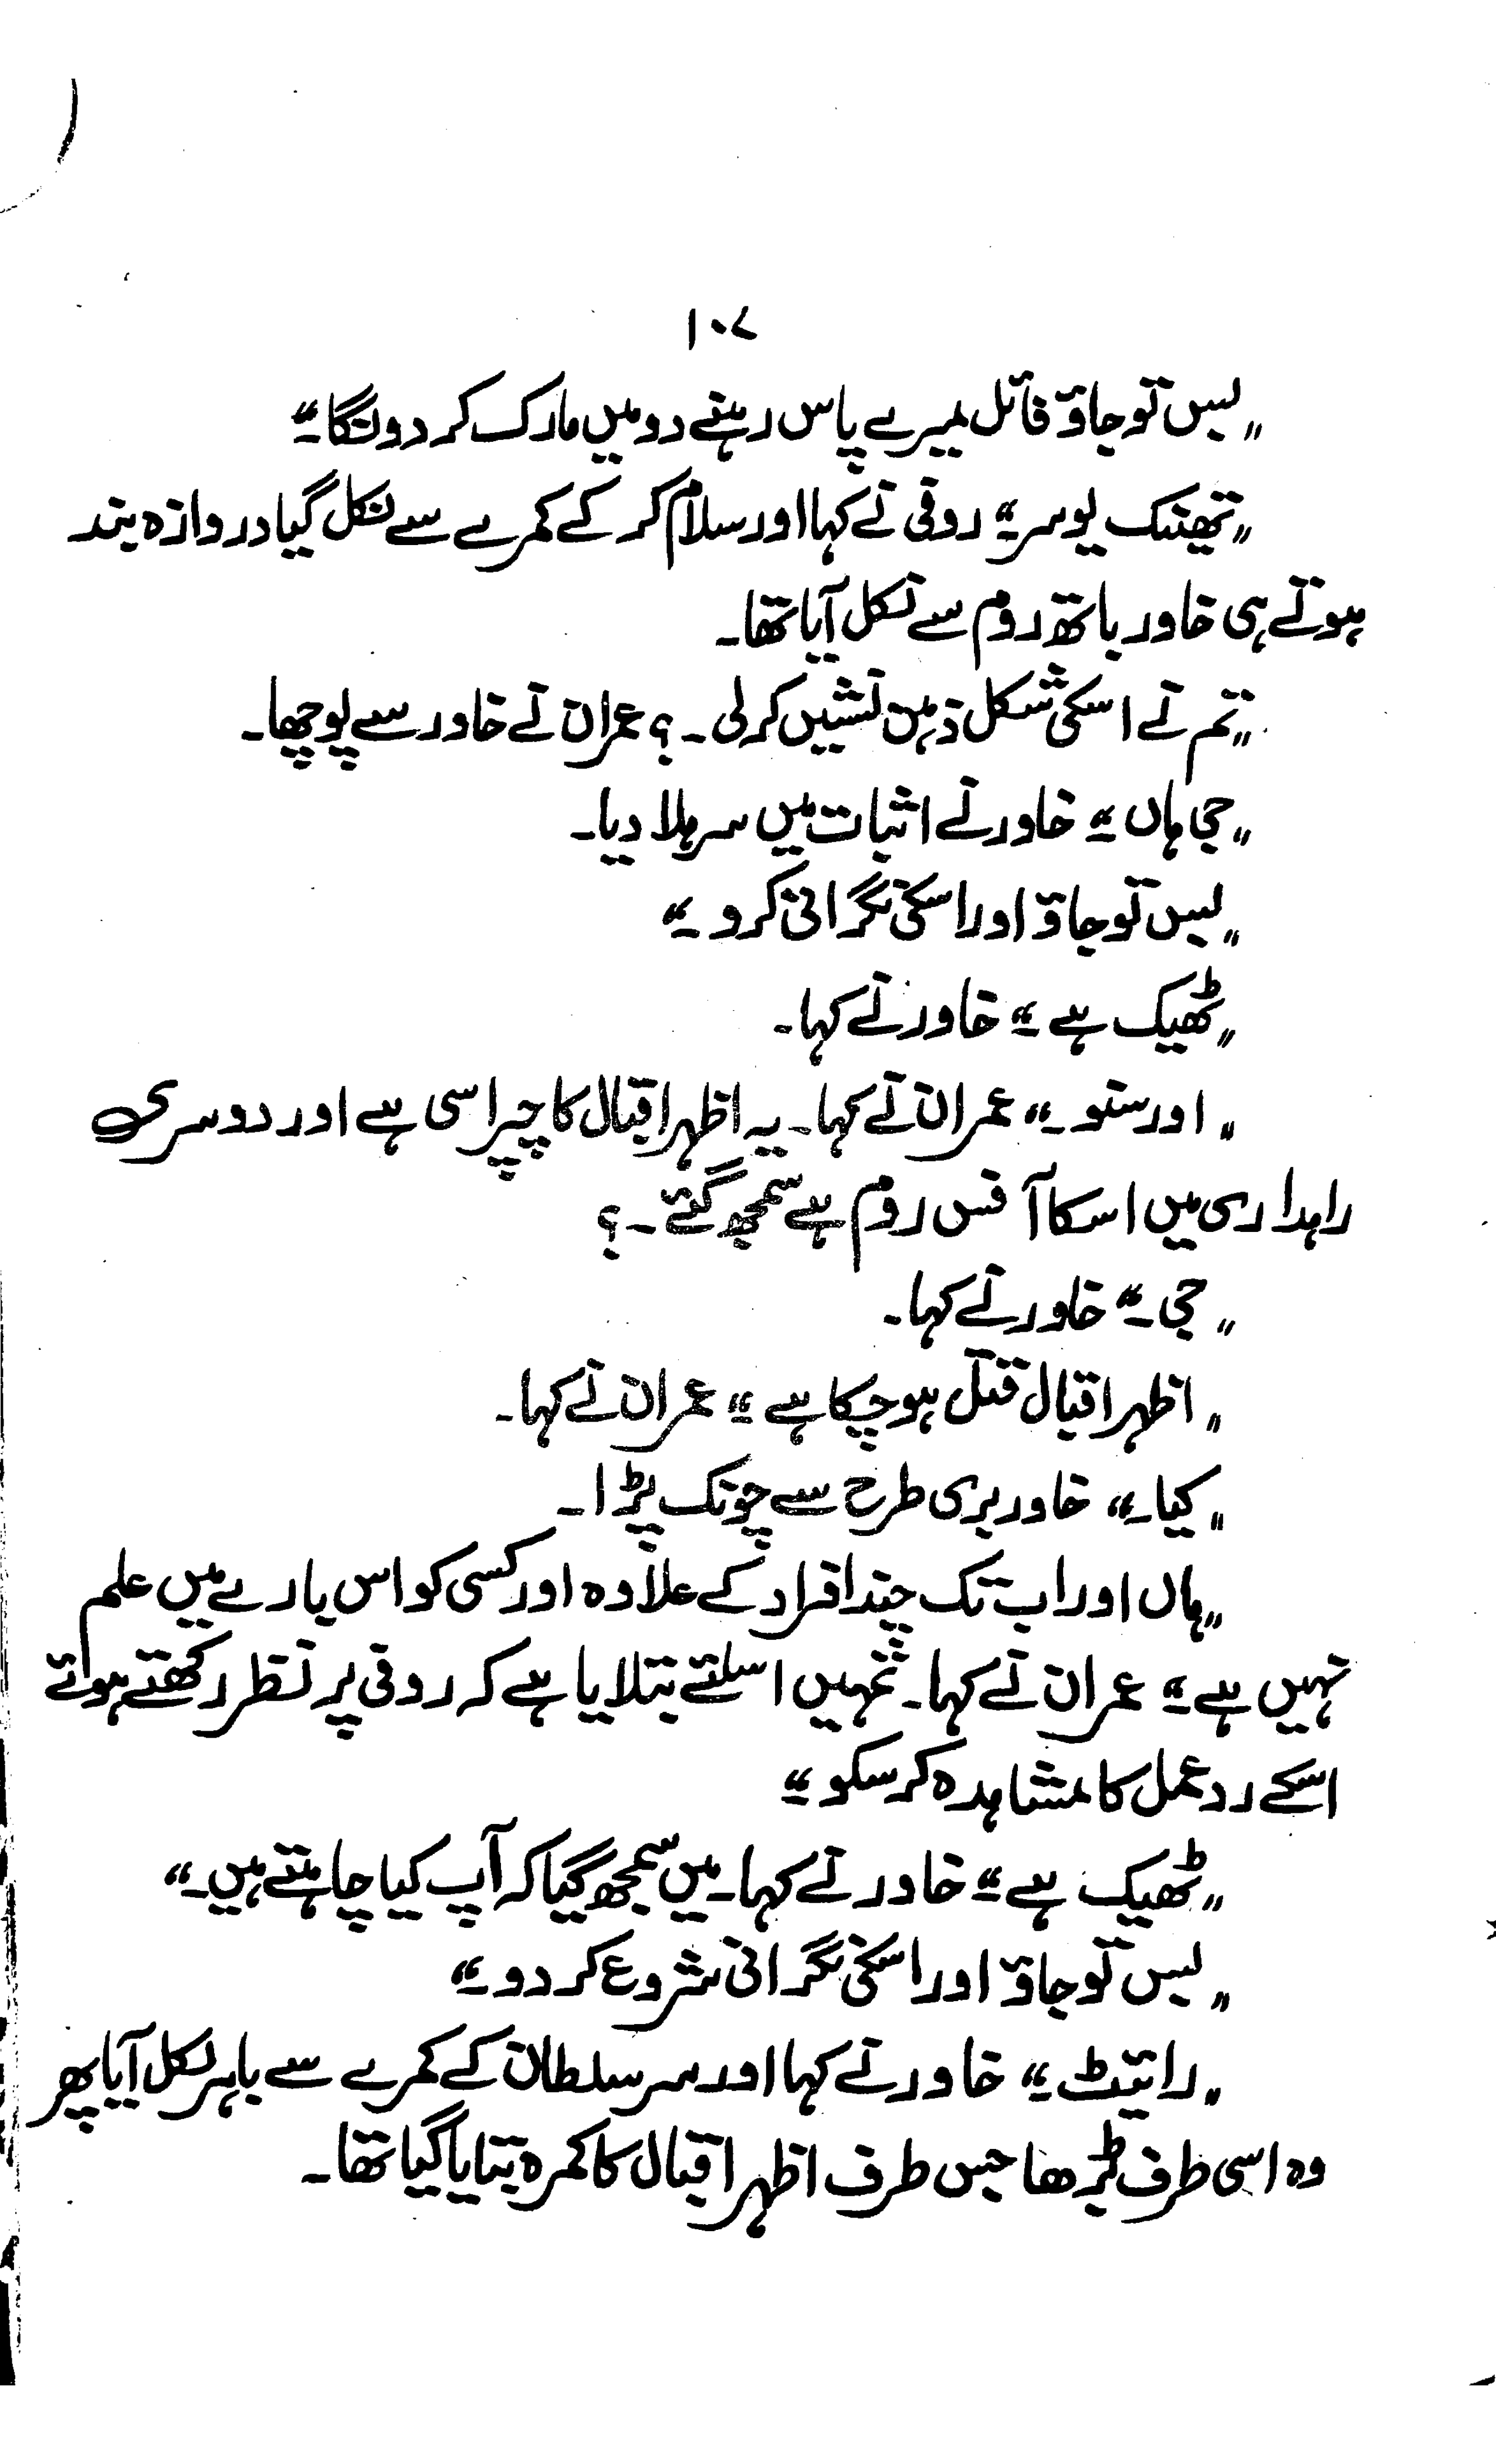 ۱۰۷
"بس تو جاؤ فائل میرے پاس رہنے دو میں مارک کر دونگا۔"
"تھینک یو سر۔" روفی نے کہا اور سلام کر کے کمرے سے نکل گیا دروازہ بند
ہوتے ہی خاور باتھ روم سے نکل آیا تھا۔
"تم نے اسکی شکل ذہن نشیں کر لی۔؟ عمران نے خاور سے پوچھا۔
"جی ہاں۔" خاور نے اثبات میں سر ہلا دیا۔
"بس تو جاؤ اور اسکی نگرانی کرو۔"
"ٹھیک ہے۔" خاور نے کہا۔
"اور سنو۔" عمران نے کہا۔ یہ اظہر اقبال کا چپراسی ہے اور دوسری
راہداری میں اسکا آفس روم ہے سمجھ گئے۔؟
"جی۔" خاور نے کہا۔
"اظہر اقبال قتل ہو چکا ہے۔" عمران نے کہا۔
"کیا۔" خاور بری طرح سے چونک پڑا۔
"ہاں اور اب تک چند افراد کے علاوہ اور کسی کو اس بارے میں علم
نہیں ہے۔" عمران نے کہا۔ تمہیں اسلئے بتلایا ہے کہ روفی پر نظر رکھتے ہوئے
اسکے ردعمل کا مشاہدہ کر سکو۔"
"ٹھیک ہے۔" خاور نے کہا۔ میں سمجھ گیا کہ آپ کیا چاہتے ہیں۔"
"بس تو جاؤ اور اسکی نگرانی شروع کر دو۔"
"رائیٹ۔" خاور نے کہا اور سر سلطان کے کمرے سے باہر نکل آیا پھر
وہ اسی طرف بڑھا جس طرف اظہر اقبال کا کمرہ بتایا گیا تھا۔